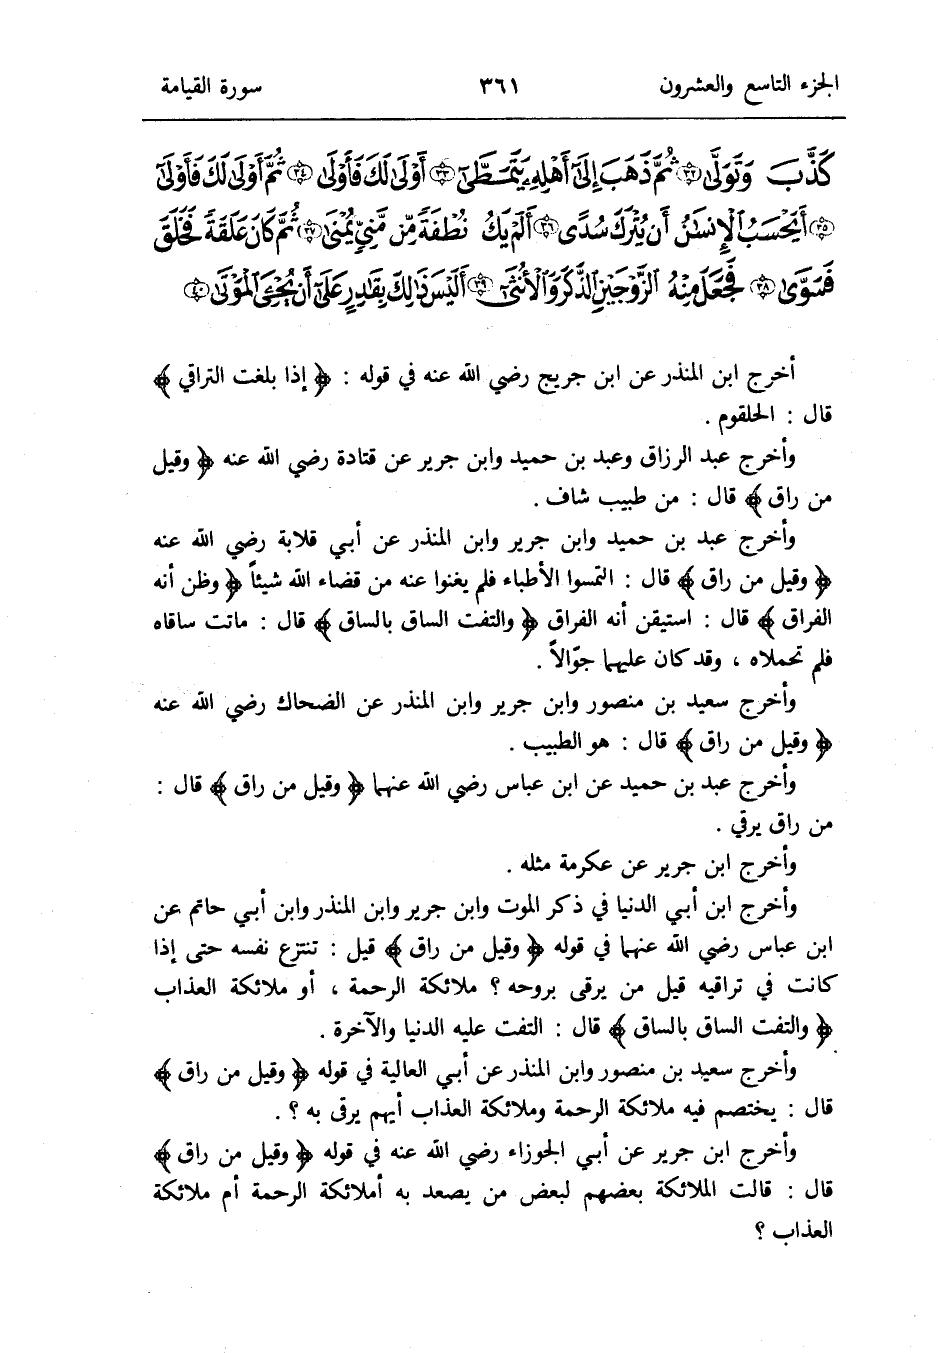 الجزء التاسع والعشرون ٣٦١ سورة القيامة
كَذَّبَ وَتَوَلَّىٰ ﴿٣٢﴾ ثُمَّ ذَهَبَ إِلَىٰٓ أَهْلِهِۦ يَتَمَطَّىٰٓ ﴿٣٣﴾ أَوْلَىٰ لَكَ فَأَوْلَىٰ ﴿٣٤﴾ ثُمَّ أَوْلَىٰ لَكَ فَأَوْلَىٰٓ
﴿٣٥﴾ أَيَحْسَبُ ٱلْإِنسَٰنُ أَن يُتْرَكَ سُدًى ﴿٣٦﴾ أَلَمْ يَكُ نُطْفَةً مِّن مَّنِىٍّ يُمْنَىٰ ﴿٣٧﴾ ثُمَّ كَانَ عَلَقَةً فَخَلَقَ
فَسَوَّىٰ ﴿٣٨﴾ فَجَعَلَ مِنْهُ ٱلزَّوْجَيْنِ ٱلذَّكَرَ وَٱلْأُنثَىٰٓ ﴿٣٩﴾ أَلَيْسَ ذَٰلِكَ بِقَٰدِرٍ عَلَىٰٓ أَن يُحْۦِىَ ٱلْمَوْتَىٰ ﴿٤٠﴾
أخرج ابن المنذر عن ابن جريج رضي الله عنه في قوله : ﴿ إذا بلغت التراقي ﴾
قال : الحلقوم .
وأخرج عبد الرزاق وعبد بن حميد وابن جرير عن قتادة رضي الله عنه ﴿ وقيل
من راق ﴾ قال : من طبيب شاف .
وأخرج عبد بن حميد وابن جرير وابن المنذر عن أبي قلابة رضي الله عنه
﴿ وقيل من راق ﴾ قال : التمسوا الأطباء فلم يغنوا عنه من قضاء الله شيئاً ﴿ وظن أنه
الفراق ﴾ قال : استيقن أنه الفراق ﴿ والتفت الساق بالساق ﴾ قال : ماتت ساقاه
فلم تحملاه ، وقد كان عليهما جوّالاً .
وأخرج سعيد بن منصور وابن جرير وابن المنذر عن الضحاك رضي الله عنه
﴿ وقيل من راق ﴾ قال : هو الطبيب .
وأخرج عبد بن حميد عن ابن عباس رضي الله عنهما ﴿ وقيل من راق ﴾ قال :
من راق يرقي .
وأخرج ابن جرير عن عكرمة مثله .
وأخرج ابن أبي الدنيا في ذكر الموت وابن جرير وابن المنذر وابن أبي حاتم عن
ابن عباس رضي الله عنهما في قوله ﴿ وقيل من راق ﴾ قيل : تنتزع نفسه حتى إذا
كانت في تراقيه قيل من يرقى بروحه ؟ ملائكة الرحمة ، أو ملائكة العذاب
﴿ والتفت الساق بالساق ﴾ قال : التفت عليه الدنيا والآخرة .
وأخرج سعيد بن منصور وابن المنذر عن أبي العالية في قوله ﴿ وقيل من راق ﴾
قال : يختصم فيه ملائكة الرحمة وملائكة العذاب أيهم يرقى به ؟ .
وأخرج ابن جرير عن أبي الجوزاء رضي الله عنه في قوله ﴿ وقيل من راق ﴾
قال : قالت الملائكة بعضهم لبعض من يصعد به أملائكة الرحمة أم ملائكة
العذاب ؟